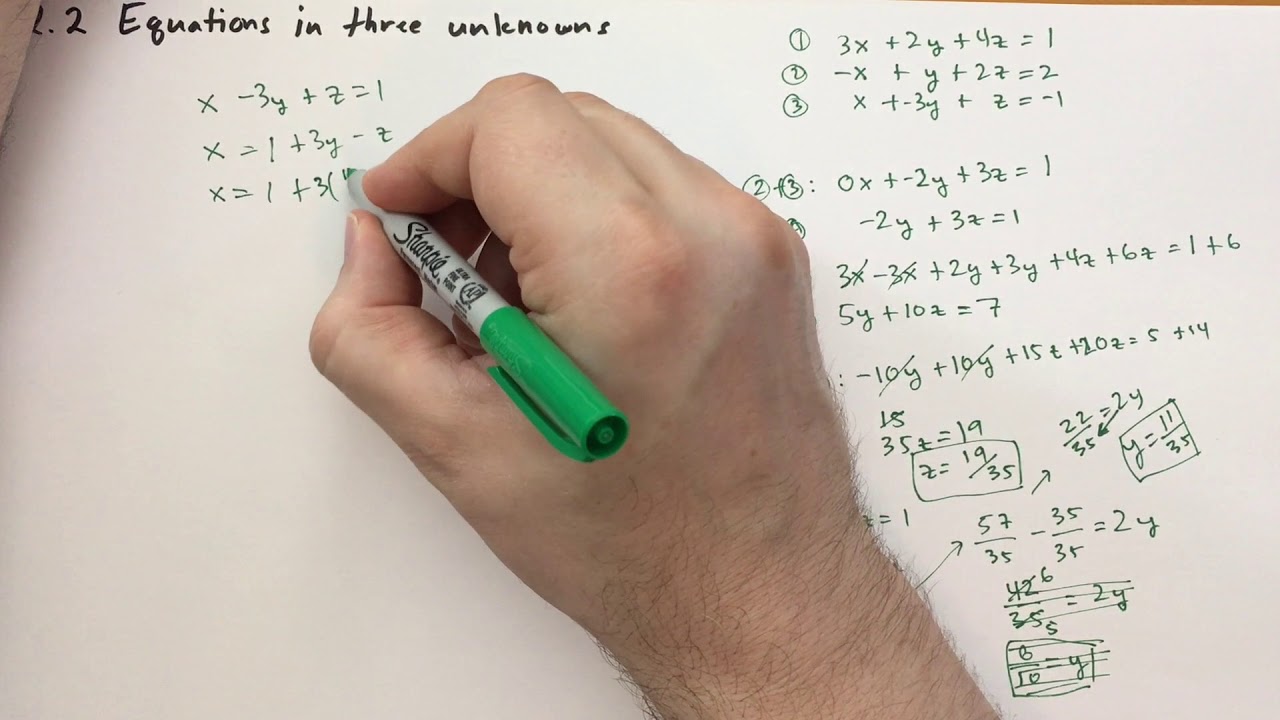 .2 Equations in three unknowns
x - 3y + z = 1
x = 1 + 3y - z
x = 1 + 3(
Sharpie
① 3x + 2y + 4z = 1
② -x + y + 2z = 2
③ x + -3y + z = -1
②+③: 0x + -2y + 3z = 1
-2y + 3z = 1
3x - 3x + 2y + 3y + 4z + 6z = 1 + 6
5y + 10z = 7
: -10y + 10y + 15z + 20z = 5 + 14
15
35z = 19
z = 19/35
22/35 = 2y
y = 11/35
z = 1
57/35 - 35/35 = 2y
42 6/35 5 = 2y
6/10 = y